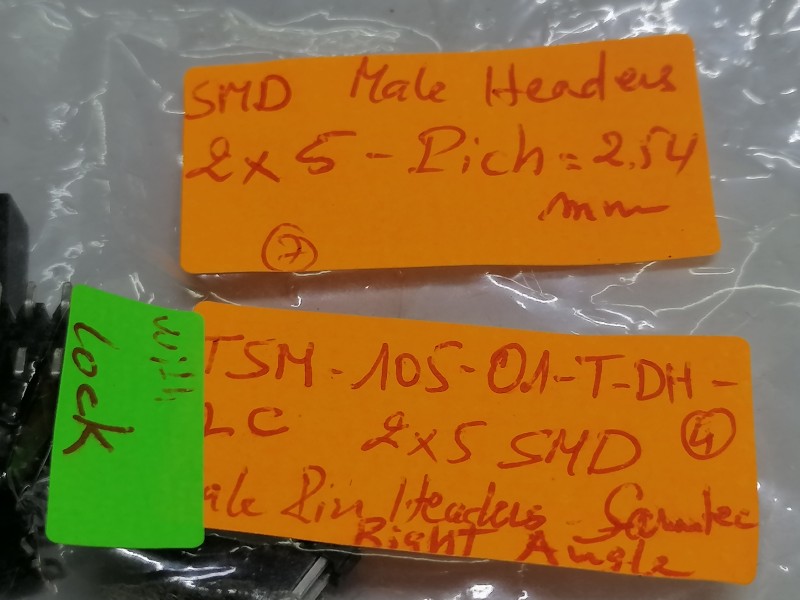 SMD Male Headers
2x5 - Pich = 2,54
mm
7
with
lock
TSM-105-01-T-DH-
LC 2x5 SMD 4
ale Pin Headers Samtec
Right Angle